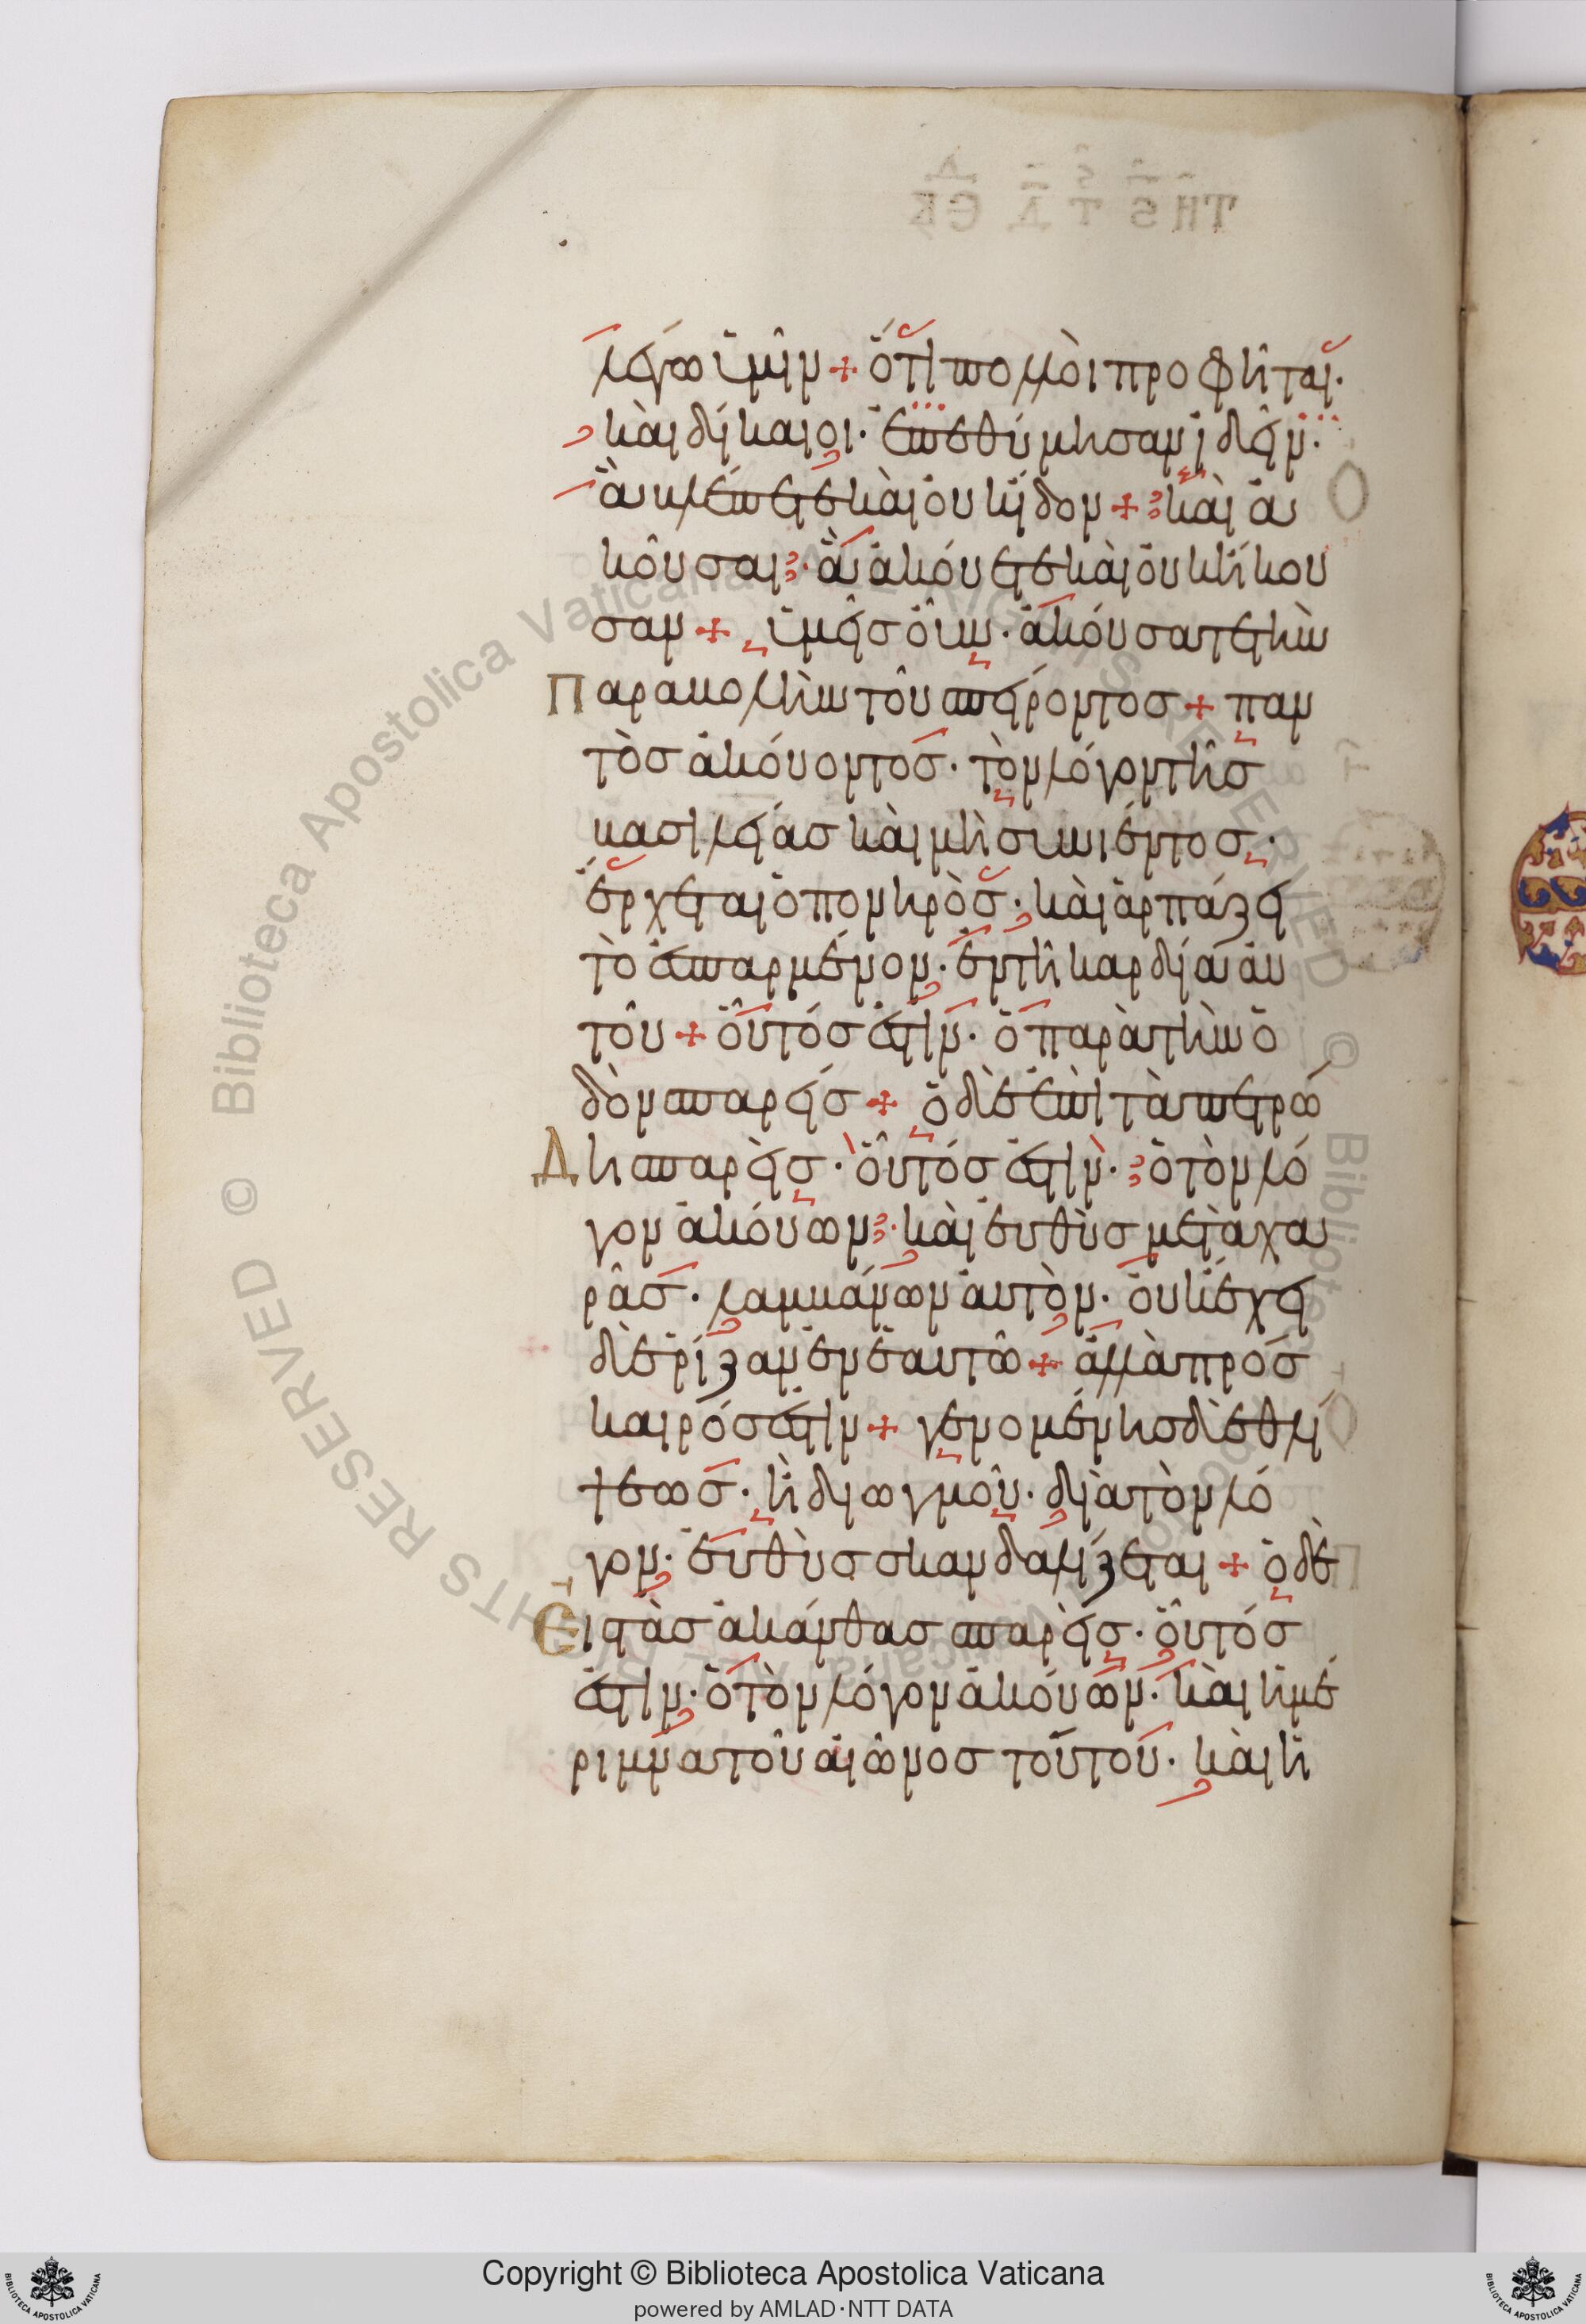 λέγω ὑμῖν + ὅτι πολλοὶ προφῆται·
καὶ δίκαιοι· ἐπεθύμησαν ἰδεῖν·
ἃ βλέπετε καὶ οὐκ εἶδον + καὶ ἀ
κοῦσαι· ἃ ἀκούετε καὶ οὐκ ἤκου
σαν + ὑμεῖς οὖν· ἀκούσατε τὴν
παραβολὴν τοῦ σπείροντος + παν
τὸς ἀκούοντος· τὸν λόγον τῆς
βασιλείας καὶ μὴ συνιέντος·
ἔρχεται ὁ πονηρὸς· καὶ ἁρπάζει
τὸ ἐσπαρμένον· ἐν τῆ καρδία αὐ
τοῦ + οὗτός ἐστιν· ὁ παρὰ τὴν ὁ
δὸν σπαρείς + ὁ δὲ ἐπὶ τὰ πετρώ
δη σπαρεὶς· οὗτός ἐστιν· ὁ τὸν λό
γον ἀκούων· καὶ εὐθὺς μετὰ χα
ρᾶς· λαμβάνων αὐτὸν· οὐκ ἔχει
δὲ ῥίζαν ἐν ἑαυτῶ + ἀλλὰ πρόσ
καιρός ἐστιν + γενομένης δὲ θλί
ψεως· ἢ διωγμοῦ· διὰ τὸν λό
γον· εὐθὺς σκανδαλίζεται + ὁ δὲ
εἰς τὰς ἀκάνθας σπαρεὶς· οὗτός
ἐστιν· ὁ τὸν λόγον ἀκούων· καὶ ἡ μέ
ριμνα τοῦ αἰῶνος τούτου· καὶ ἡ
Copyright © Biblioteca Apostolica Vaticana
powered by AMLAD·NTT DATA